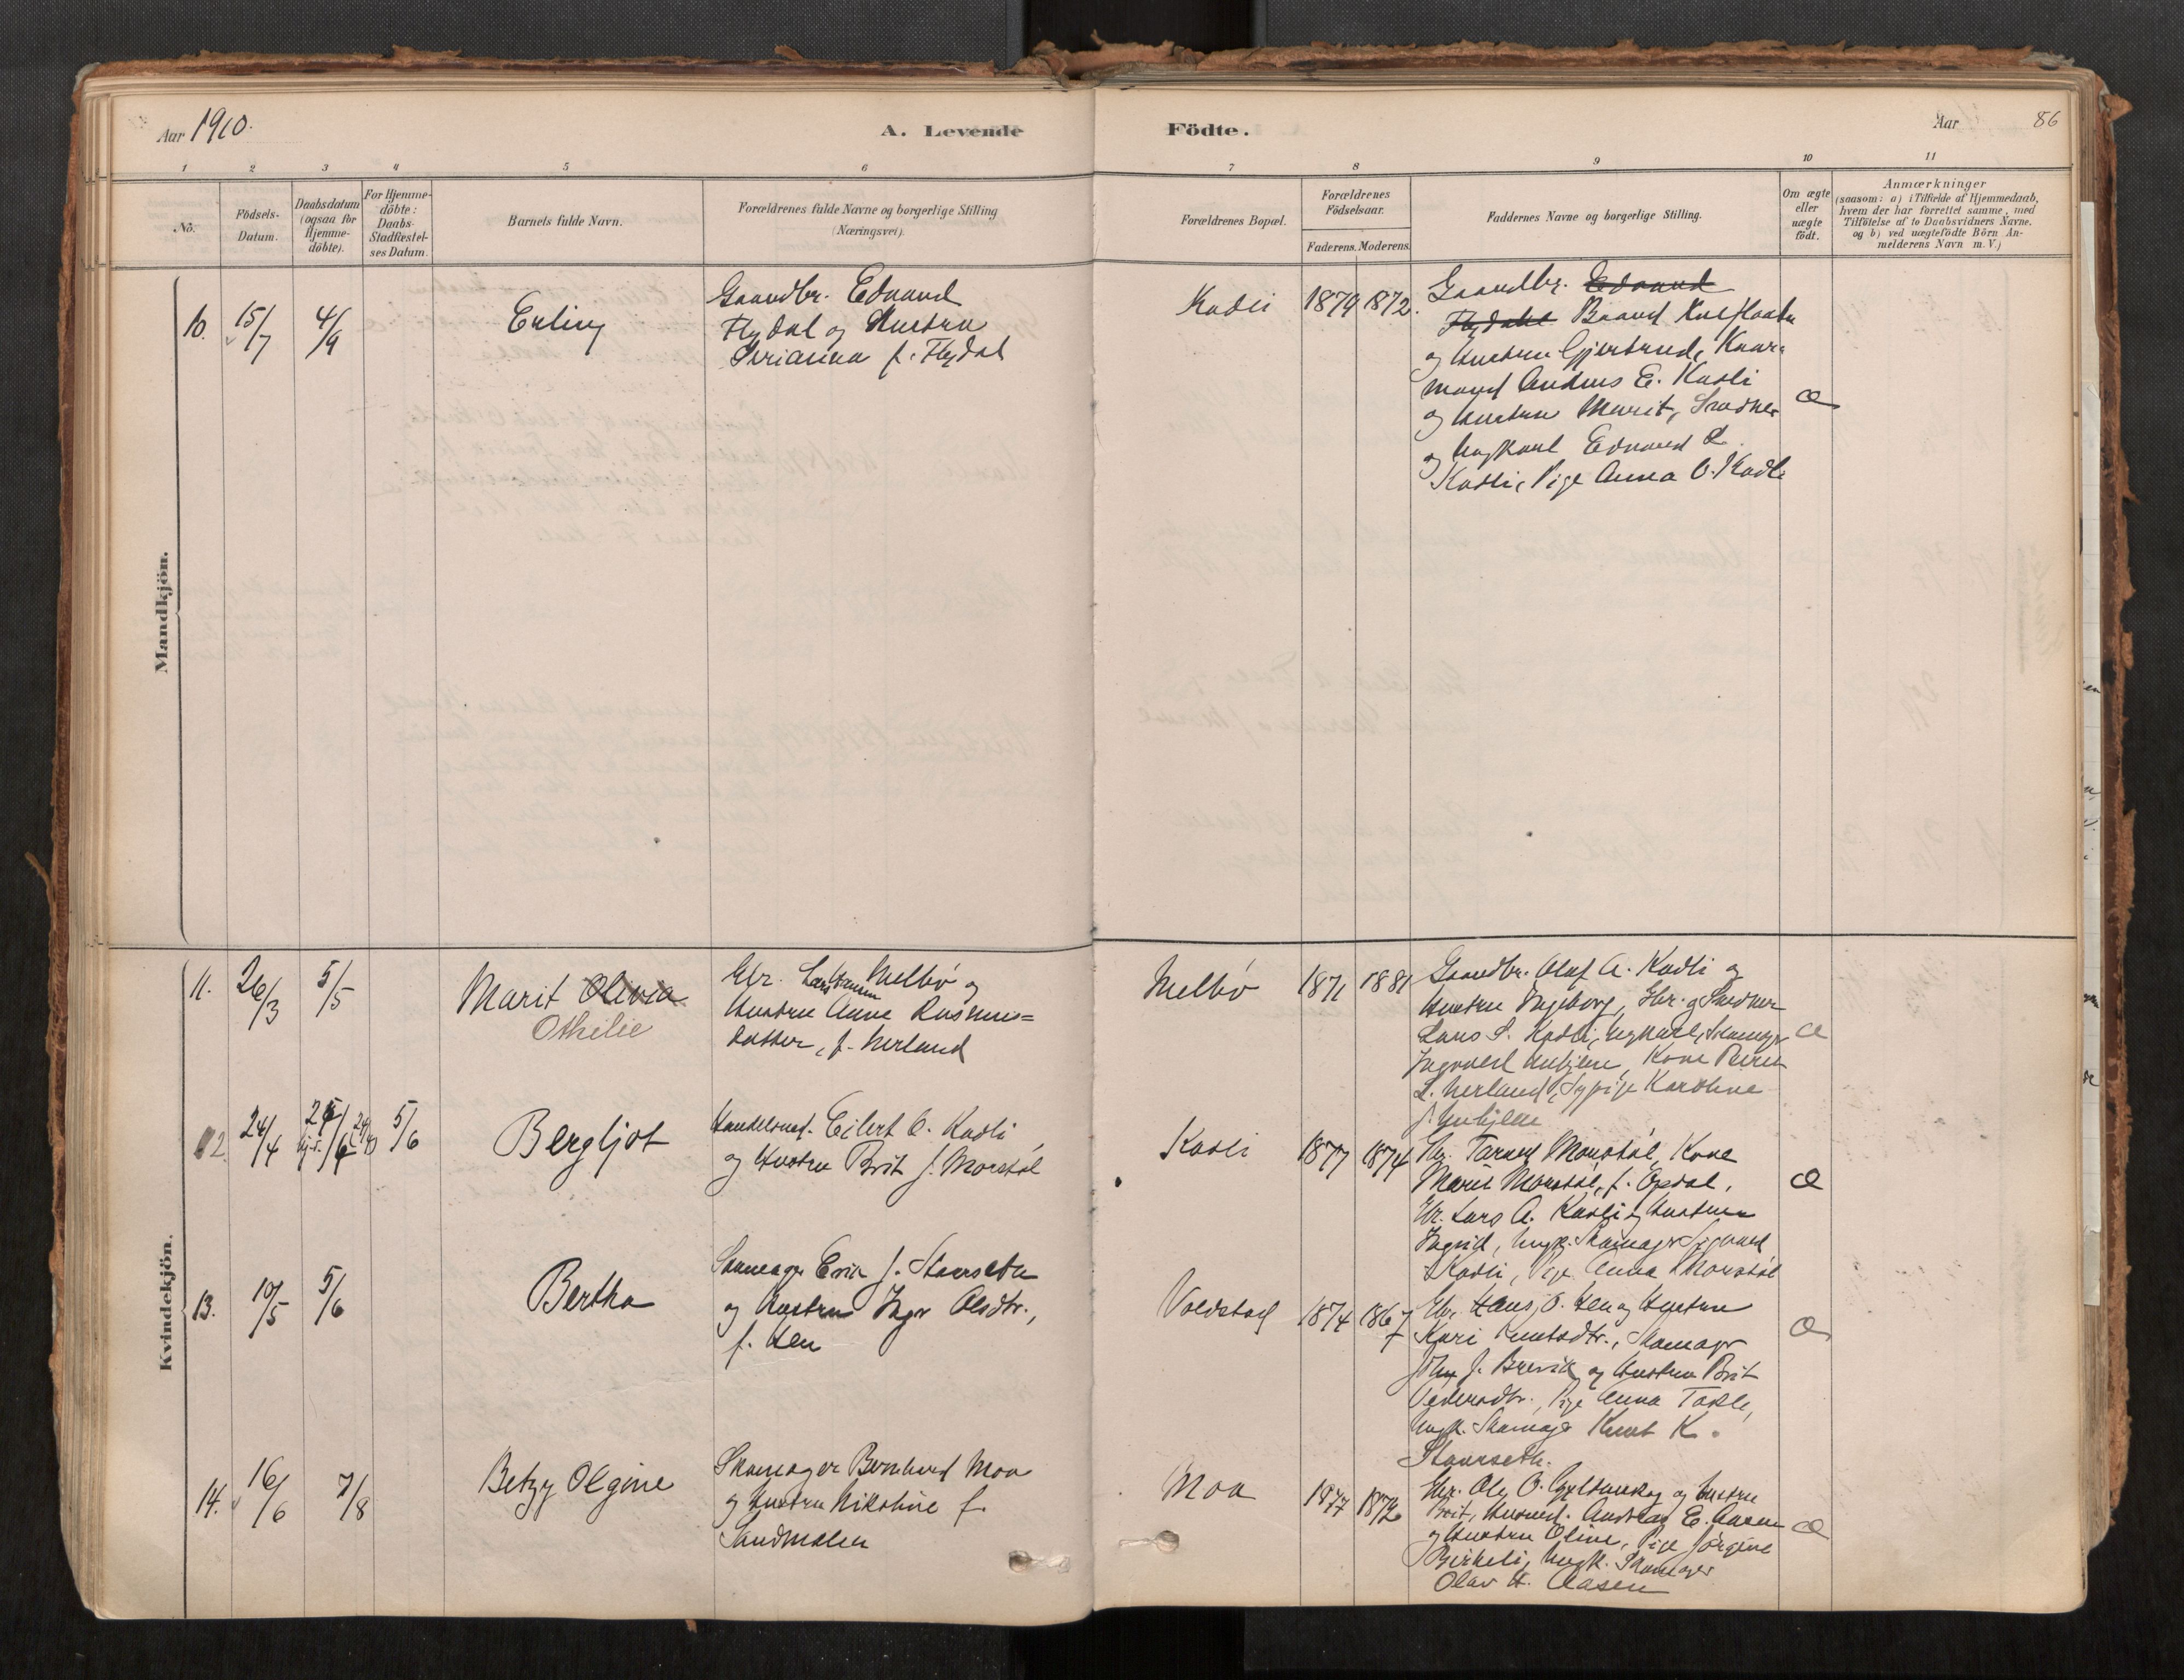 Aar 1910.
A. Levende
Födte.
Aar
86
1 2 3 4 5 6 7 8 9 10 11
No.
Födsels-
Datum.
Daabsdatum
(ogsaa for
Hjemme-
döbte).
For Hjemme-
döbte:
Daabs-
Stadfæstel-
ses Datum.
Barnets fulde Navn.
Forældrenes fulde Navne og borgerlige Stilling
(Næringsvei).
Forældrenes Bopæl.
Forældrenes
Födselsaar.
Faderens. Moderens.
Faddernes Navne og borgerlige Stilling.
Om ægte
eller
uægte
födt.
Anmærkninger
(saasom: a) i Tilfælde af Hjemmedaab,
hvem der har forrettet samme, med
Tilföielse af to Daabsvidners Navne.
og b) ved uægtefödte Börn An-
melderens Navn m. V.)
Mandkjön.
10. 15/7 4/9
Erling
Gaardbr. Edvard
Flydal og Hustru
Serianna f. Flydal
Kasli
1879 1872.
Gaardbr. Edvard
Flydahl Baard
og Hustru Gjertrud,
mand Anders E. Kasli
og Hustru Marit, Snedker
og Ungkarl Edvard L.
Kasli, Pige Anna O. Kasli
æ
Kvindekjön.
11. 26/3 5/5
Marit Olivia
Othilie
Gbr. Lars Melbö og
Hustru Anne Rasmus=
datter, f. Nerland
Melbö
1871 1881
Gaardbr. Olaf A. Kasli og
Hustru Ingeborg, Gbr. og Snedker
Lars S. Kasli, Ungkarl, Skomager
Ingvald, Kone
L. Nerland, Sypige Karoline
æ
12. 24/4 5/6
Bergljot
Handelsmd. Eilert O. Kasli
og Hustru Brit f. Morstöl
Kasli
1877 1874
Morstöl, Kone
Marit Morstöl, f. Opdal,
Gbr. Lars A. Kasli og Hustru
Ingrid, Ungk. Skomager Sigvard
Kasli, Pige Anna Morstöl
æ
13. 10/5 5/6
Bertha
Skomager Erik J. Stavseth
og Hustru Inger Olsdtr.,
f. Hen
Voldstad
1874 1867
Gbr. Hans O. Hen og Hustru
Kari Knutsdtr., Skomager
John J. Brevik og Hustru Brit
Pedersdtr., Pige Anna Tokle,
Ungk. Skomager Knut K.
Stavseth.
æ
14. 16/6 7/8
Betzy Olgine
Skomager Bernhard Moa
og Hustru Nikoline f.
Sandmolen
Moa
1877 1872
Gbr. Ole O. og Hustru
Brit, Husmd. Andreas E. Aasen
og Hustru Oline, Pige Jörgine
Birkeli, Ungk. Skomager
Olav H. Aasen
æ